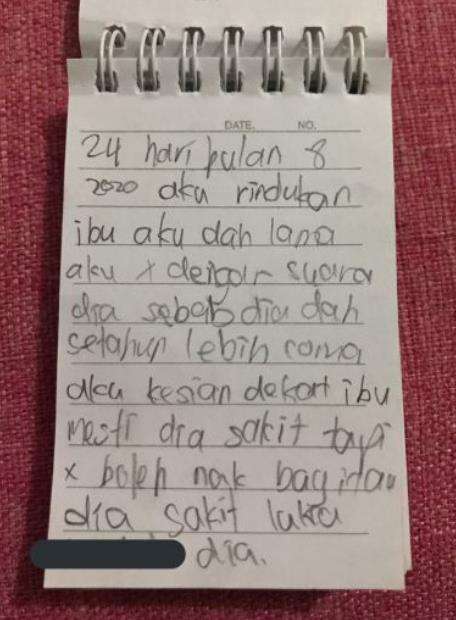 DATE. NO.
24 hari bulan 8
2020 aku rindukan
ibu aku dah lama
aku x dengar suara
dia sebab dia dah
setahun lebih coma
aku kesian dekat ibu
mesti dia sakit tapi
x boleh nak bagitau
dia sakit
dia.